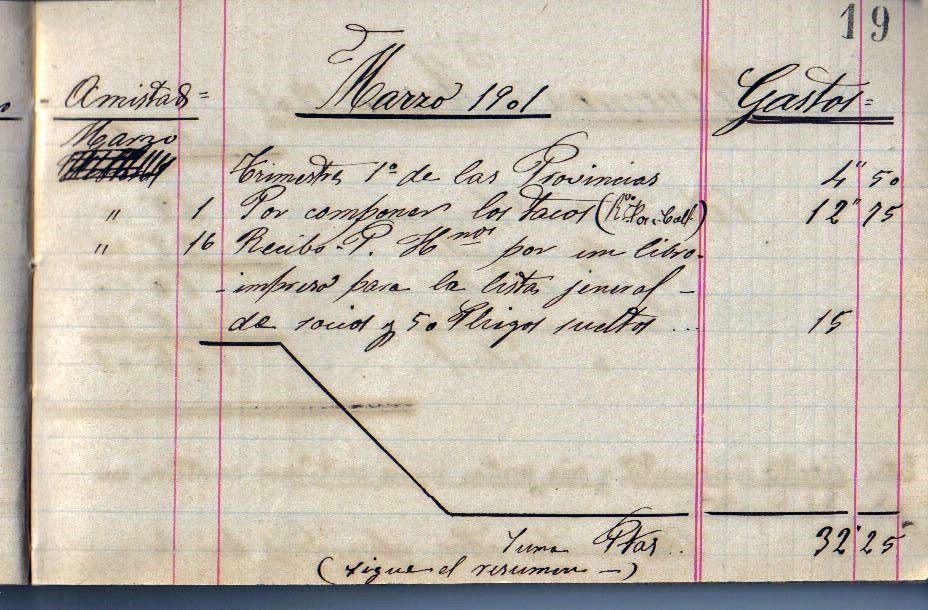 19
Amistad= Marzo 1901 Gastos=
Marzo
Trimestre 1º de las Provincias 4" 50
" 1 Por componer los tacos ( ) 12" 75
" 16 Recibo P. Hnos por un libro-
-impreso para la lista jeneral-
de socios y 50 Pliegos sueltos... 15
Suma Ptas.. 32"25
(sigue el resumen-)